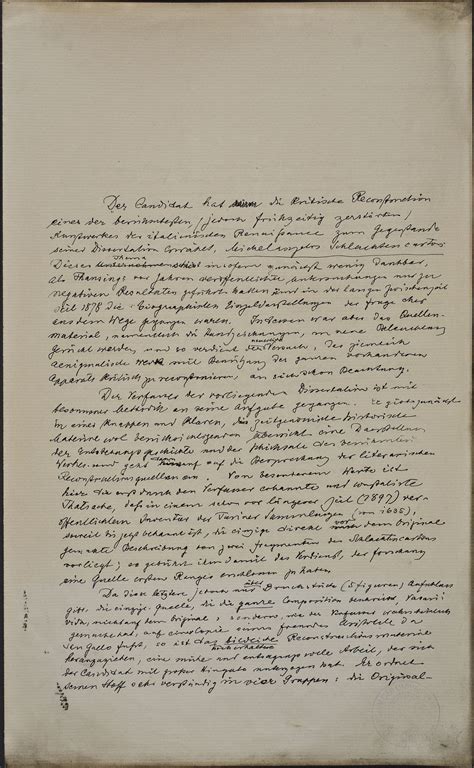 Der Candidat hat die kritische Reconstruction
eines der berühmtesten, jedoch frühzeitig zerstörten,
Kunstwerkes der italienischen Renaissance zum Gegenstande
seiner Dissertation erwählt, Michelangelos Schlachtencarton.
Dieses Thema ist insofern zunächst wenig dankbar,
als Thausings vor Jahren veröffentlichte nur zu
negativen Resultaten geführt hatten und in der langen Zwischenzeit
seit 1878 die biographischen Einzeldarstellungen der Frage eher
aus dem Wege gegangen waren. Indessen war aber das Quellen-
material, namentlich die Handzeichnungen, in neue Beleuchtung
gerückt worden, und so verdient der Versuch, das ziemlich
aenigmatische Werk mit Benützung des ganzen vorhandenen
Apparats kritisch zu reconstruieren, an sich schon Beachtung.
Der Verfasser der vorliegenden Dissertation ist mit
besonnener Methodik an seine Aufgabe gegangen. Er gibt zunächst
in einer knappen und klaren, das zeitgenössische historische
Materiale wol berücksichtigenden Übersicht eine Darstellung
der Entstehungsgeschichte und der Schicksale des berühmten
Werkes und geht auf die Besprechung der literarischen
Reconstructionsquellen ein. Von besonderem Werte ist
hier die erst durch den Verfasser erkannte und constatierte
Thatsache, daß in einem schon vor längerer Zeit (1897) ver-
öffentlichten Inventar der Turiner Sammlungen (von 1635),
soweit bis jetzt bekannt ist, die einzige direkt vor dem Original
gemachte Beschreibung von zwei Fragmenten des Schlachtcartons
vorliegt; es gebührt ihm damit das Verdienst, der Forschung
eine Quelle ersten Ranges erschlossen zu haben.
Da diese letztere jedoch nur über Bruchstücke (5 Figuren) Aufschluss
gibt, die einzige Quelle, die die ganze Composition beschreibt, Vasaris
Vida, nicht auf dem Original, sondern, wie der Verfasser wahrscheinlich
gemacht hat, auf einer Copie seines Freundes Aristotele da
San Gallo fußt, so ist das bildliche Reconstructionsmateriale
heranzuziehen, eine mühe- und entsagungsvolle Arbeit, der sich
der Candidat mit großer Hingabe unterzogen hat. Er ordnet
seinen Stoff sehr verständig in vier Gruppen: die Original-